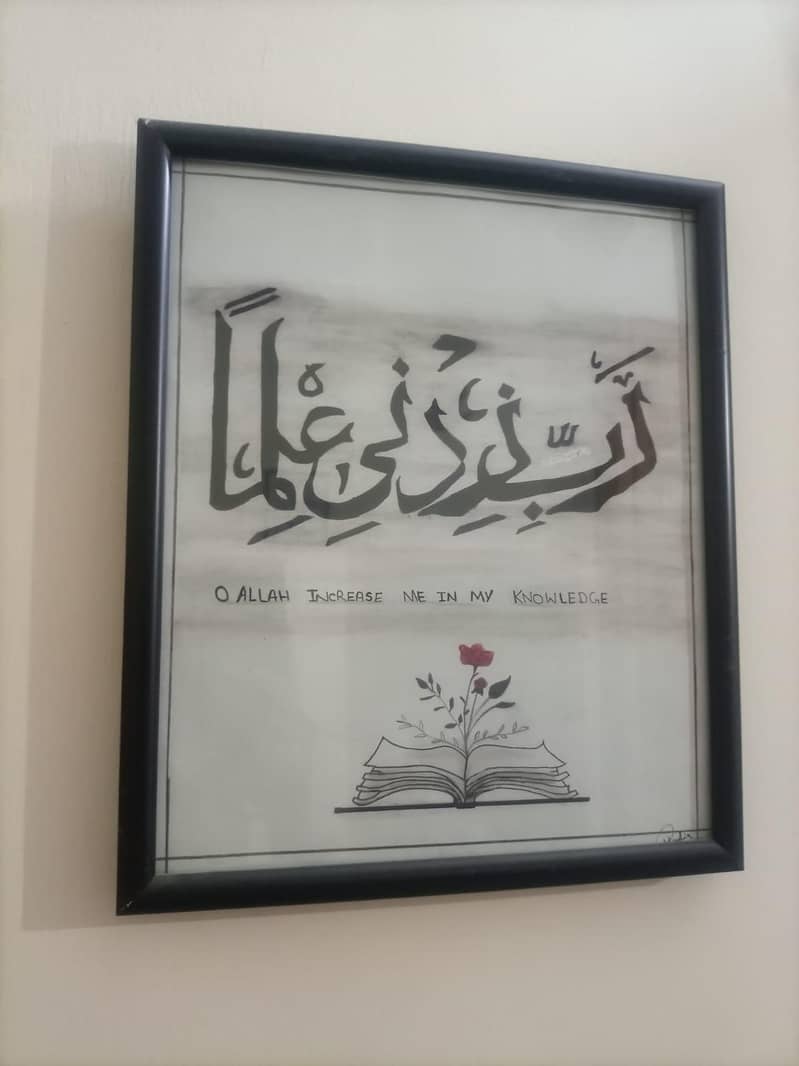 رَّبِّ زِدْنِي عِلْمًا
O ALLAH INCREASE ME IN MY KNOWLEDGE